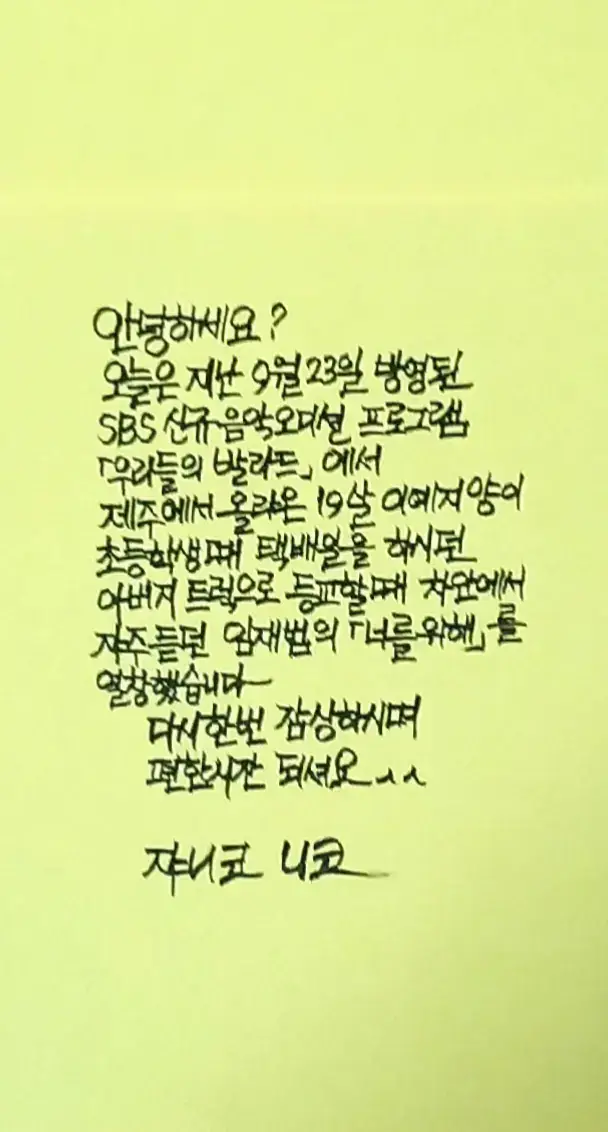 안녕하세요?
오늘은 지난 9월 23일 방영된
SBS 신규음악오디션 프로그램
「우리들의 발라드」에서
제주에서 올라온 19살 이예지양이
초등학생때 택배일을 하시던
아버지 트럭으로 등교할때 차안에서
자주듣던 임재범의 「너를위해」를
열창했습니다
다시한번 감상하시며
편한시간 되셔요^^
쟈니코 니코